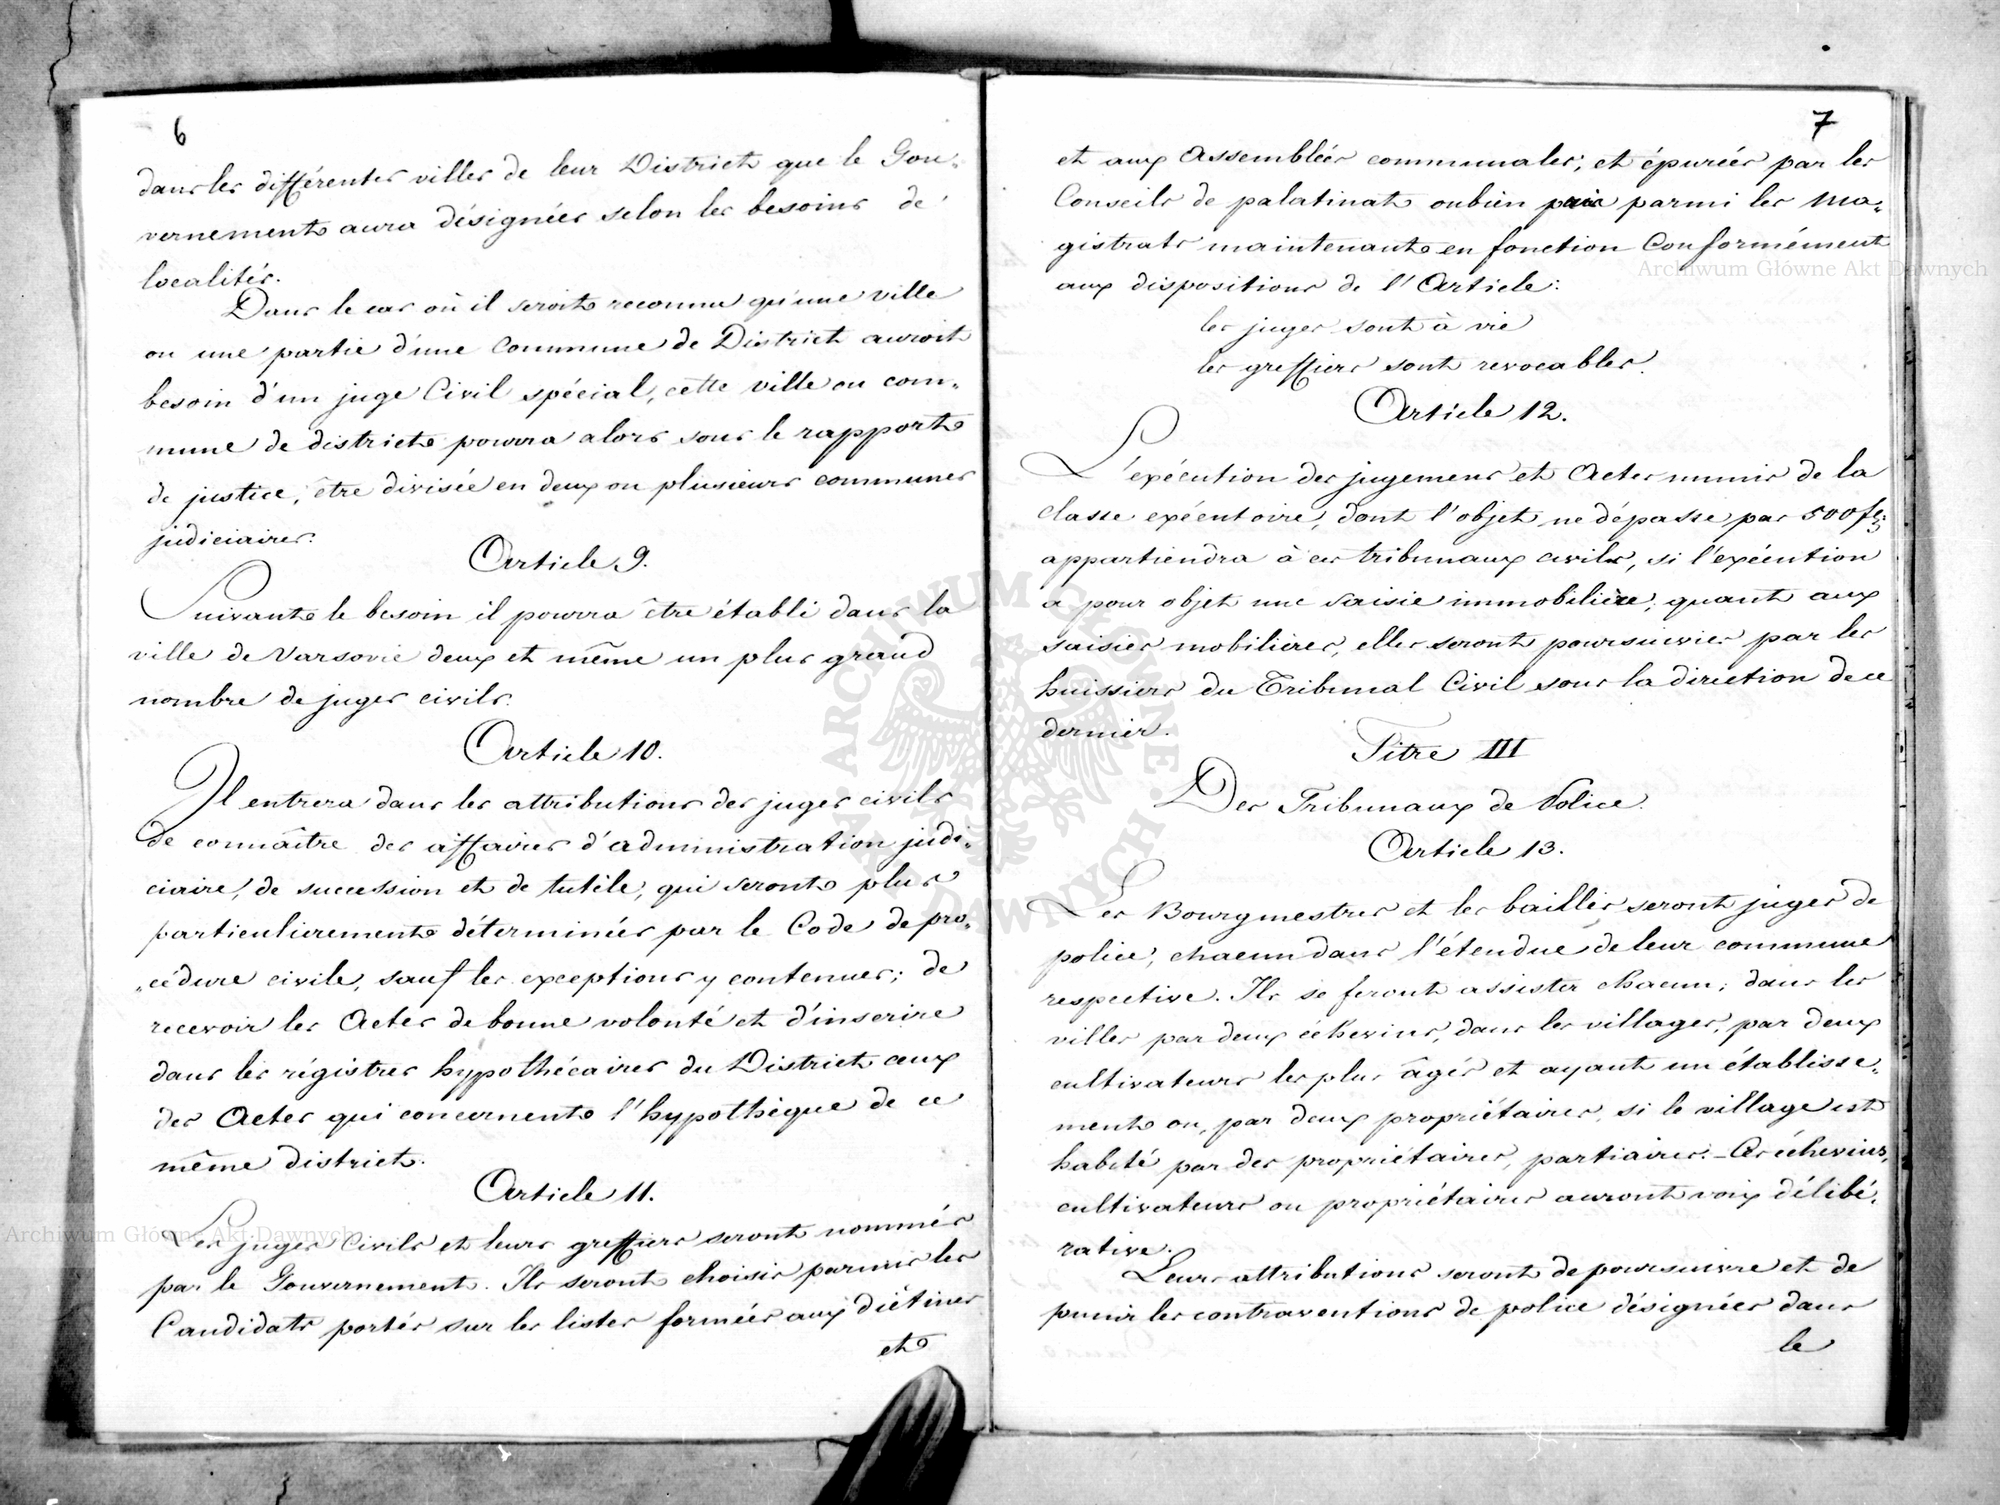 6
dans les différentes villes de leur District que le Gou-
vernement aura désignées selon les besoins de
localités.
Dans le cas où il seroit reconnu qu'une ville
ou une partie d'une Commune de District auroit
besoin d'un juge Civil spécial, cette ville ou com-
mune de district pourra alors sous le rapport
de justice, être divisée en deux ou plusieurs communes
judiciaires.
Article 9.
Suivant le besoin il pourra être établi dans la
ville de Varsovie deux et même un plus grand
nombre de juges civils.
Article 10.
Il entrera dans les attributions des juges civils
de connaître des affaires d'administration judi-
ciaire, de succession et de tutèle, qui seront plus
particulierement déterminées par le Code de pro-
cédure civile, sauf les exceptions y contenues; de
recevoir les Actes de bonne volonté et d'inscrire
dans les régistres hypothécaires du District ceux
des Actes qui concernent l'hypothèque de ce
même district.
Article 11.
Les juges Civils et leurs greffiers seront nommés
par le Gouvernement. Ils seront choisis parmis les
Candidats portés sur les listes formées aux diétines
et
7
et aux Assemblées communales; et épurées par les
Conseils de palatinat oubien pris parmi les Ma-
gistrats maintenant en fonction Conformément
aux dispositions de l'Article:
les juges sont à vie
les greffiers sont revocables.
Article 12.
L'exécution des jugemens et Actes munis de la
classe exécutoire, dont l'objet ne dépasse pas 500 fl:
appartiendra à ces tribunaux civils, si l'exécution
a pour objet une saisie immobilière; quant aux
saisies mobilières, elles seront poursuivies par les
huissiers du Tribunal Civil sous la direction de ce
dernier.
Titre III
Des Tribunaux de Police.
Article 13.
Les Bourgmestres et les baillis seront juges de
police, chacun dans l'étendue de leur commune
respective. Ils se feront assister chacun; dans les
villes par deux échevins, dans les villages, par deux
cultivateurs les plus âgés et ayant un établisse-
ment ou, par deux propriétaires, si le village est
habité par des propriétaires, partiaires. - Ces échevins,
cultivateurs ou propriétaires auront voix délibé-
rative.
Leurs attributions seront de poursuivre et de
punir les contraventions de police désignées dans
le
Archiwum Główne Akt Dawnych
Archiwum Główne Akt Dawnych
ARCHIWUM GŁÓWNE AKT DAWNYCH